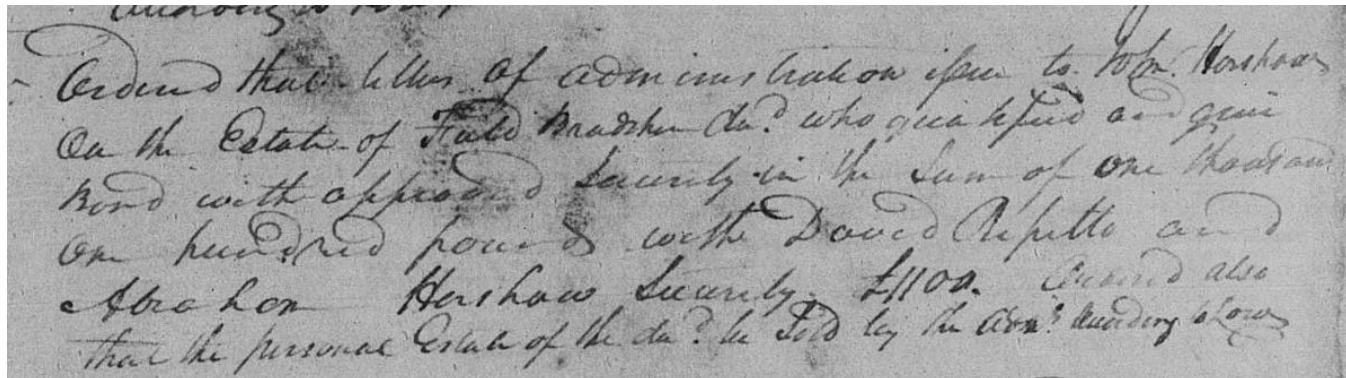 according to Law
Ordered that letters of administration issue to John Henshaw
On the Estate of Field Bradsher decd. who qualified and give
Bond with approved Security in the Sum of One thousand
One hundred pounds with David and
Abraham Henshaw Security £1100. Ordered also
that the personal Estate of the decd. be Sold by the Admr. according to Law